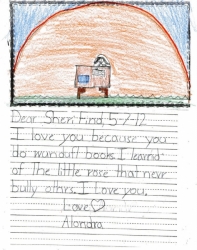 Dear Sheri Find, 5-7-12
I love you because you
do wondufl books. I learnd
of the little rose that nevr
bully othrs. I love you.
Love♡
Alondra